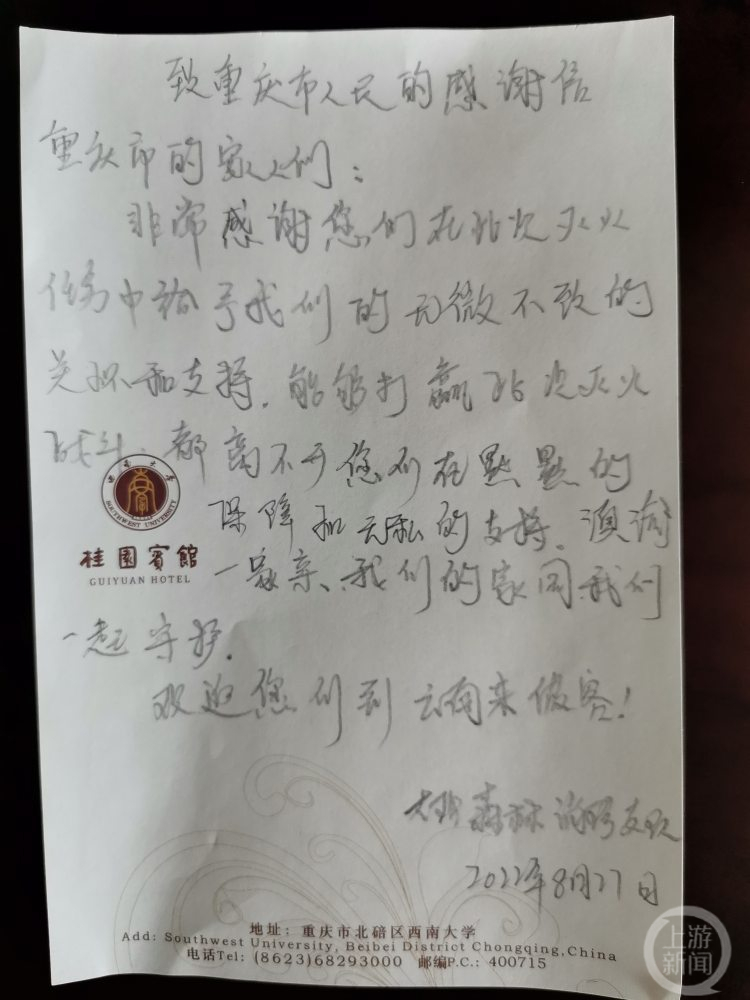 致重庆市人民的感谢信
重庆市的家人们:
非常感谢您们在此次灭火
任务中给予我们的无微不致的
关怀和支持. 能够打赢此次灭火
战斗. 都离不开您们在默默的
保障和无私的支持. 滇渝
一家亲、我们的家园我们
一起守护.
欢迎您们到云南来做客!
大理森林消防支队
2022年8月27日
西南大学
SOUTHWEST UNIVERSITY
桂園賓館
GUIYUAN HOTEL
地址: 重庆市北碚区西南大学
Add: Southwest University, Beibei District Chongqing,China
电话Tel: (8623)68293000 邮编P.C.: 400715
上游新闻